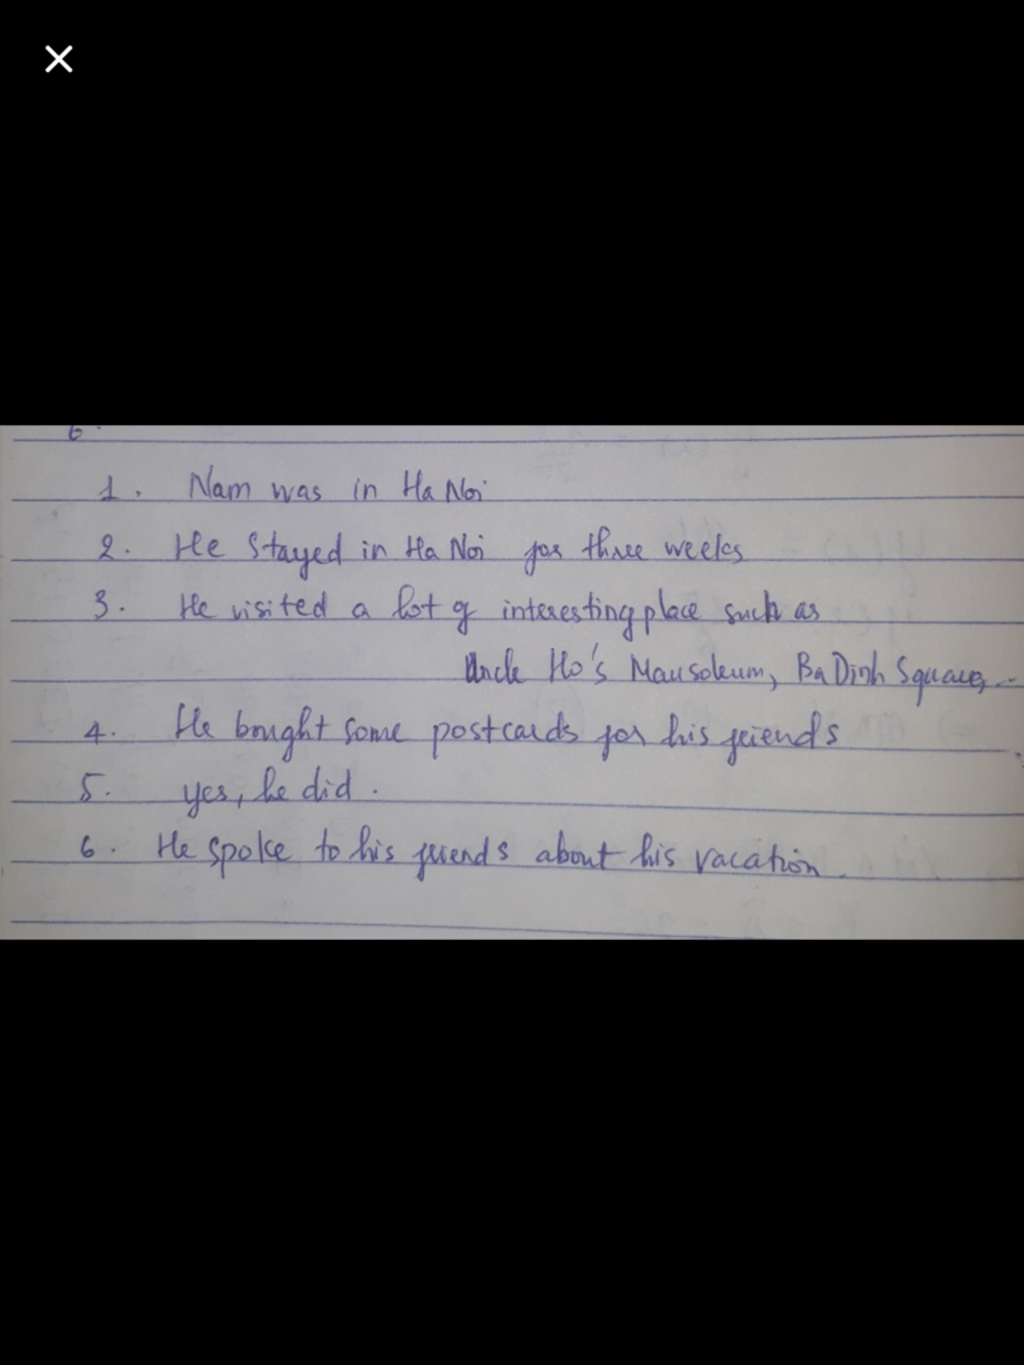 6.
1. Nam was in Ha Noi
2. He stayed in Ha Noi for three weeks
3. He visited a lot of interesting place such as
Uncle Ho's Mausoleum, Ba Dinh Square, ...
4. He bought some postcards for his friends
5. yes, he did.
6. He spoke to his friends about his vacation.